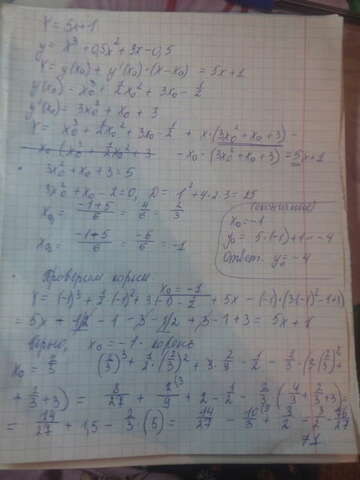 Y = 5x+1
y = x³ + 0,5x² + 3x - 0,5
Y = y(x₀) + y'(x₀)·(x - x₀) = 5x+1
y(x₀) = x₀³ + ½x₀² + 3x₀ - ½
y'(x₀) = 3x₀² + x₀ + 3
Y = x₀³ + ½x₀² + 3x₀ - ½ + x·(3x₀² + x₀ + 3) -
- x₀·(3x₀² + x₀ + 3) = 5x+1
3x₀² + x₀ + 3 = 5
3x₀² + x₀ - 2 = 0, D = 1² + 4·2·3 = 25
x₀ = (-1+5)/6 = 4/6 = 2/3
x₀ = (-1-5)/6 = -6/6 = -1
(окончание)
x₀ = -1
y₀ = 5·(-1)+1 = -4
Ответ: y₀ = -4
Проверяем корни
x₀ = -1
Y = (-1)³ + ½·(-1)² + 3·(-1) - ½ + 5x - (-1)·(3·(-1)² - 1 + 3) =
= 5x + 1/2 - 1 - 3 - 1/2 + 3 - 1 + 3 = 5x + 1
верно, x₀ = -1 - корень
x₀ = 2/3 (2/3)³ + ½·(2/3)² + 3·2/3 - ½ - 2/3·(3·(2/3)² +
+ 2/3 + 3) = 8/27 + 2/9 + 2 - ½ - 2/3·(4/3 + 2/3 + 3) =
= 14/27 + 1,5 - 2/3·(5) = 14/27 - 10/3 + 3/2
≠ 1